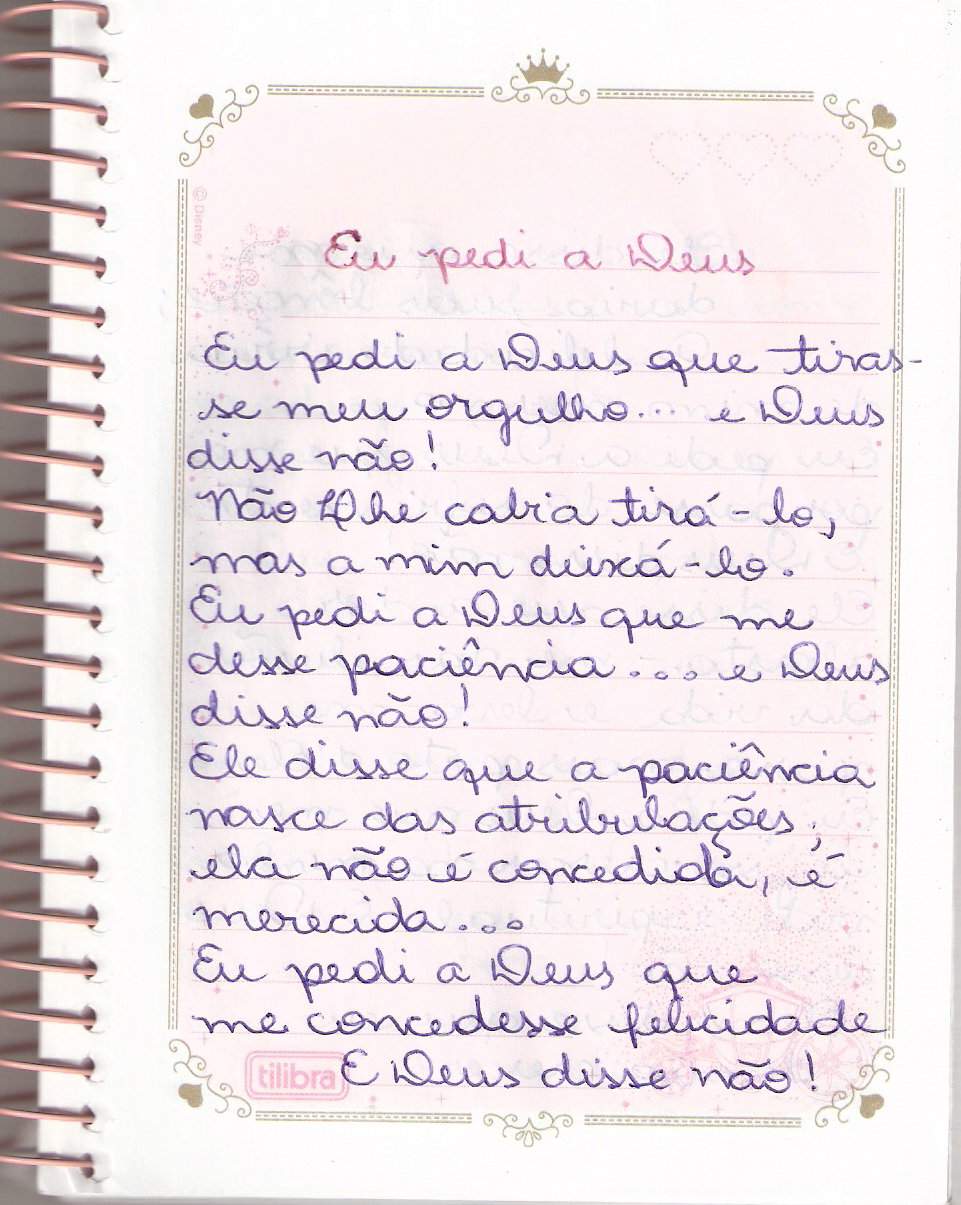 © Disney
Eu pedi a Deus
Eu pedi a Deus que tiras-
se meu orgulho... e Deus
disse não!
Não Lhe cabia tirá-lo,
mas a mim deixá-lo.
Eu pedi a Deus que me
desse paciência... e Deus
disse não!
Ele disse que a paciência
nasce das atribulações,
ela não é concedida, é
merecida...
Eu pedi a Deus que
me concedesse felicidade
E Deus disse não!
tilibra